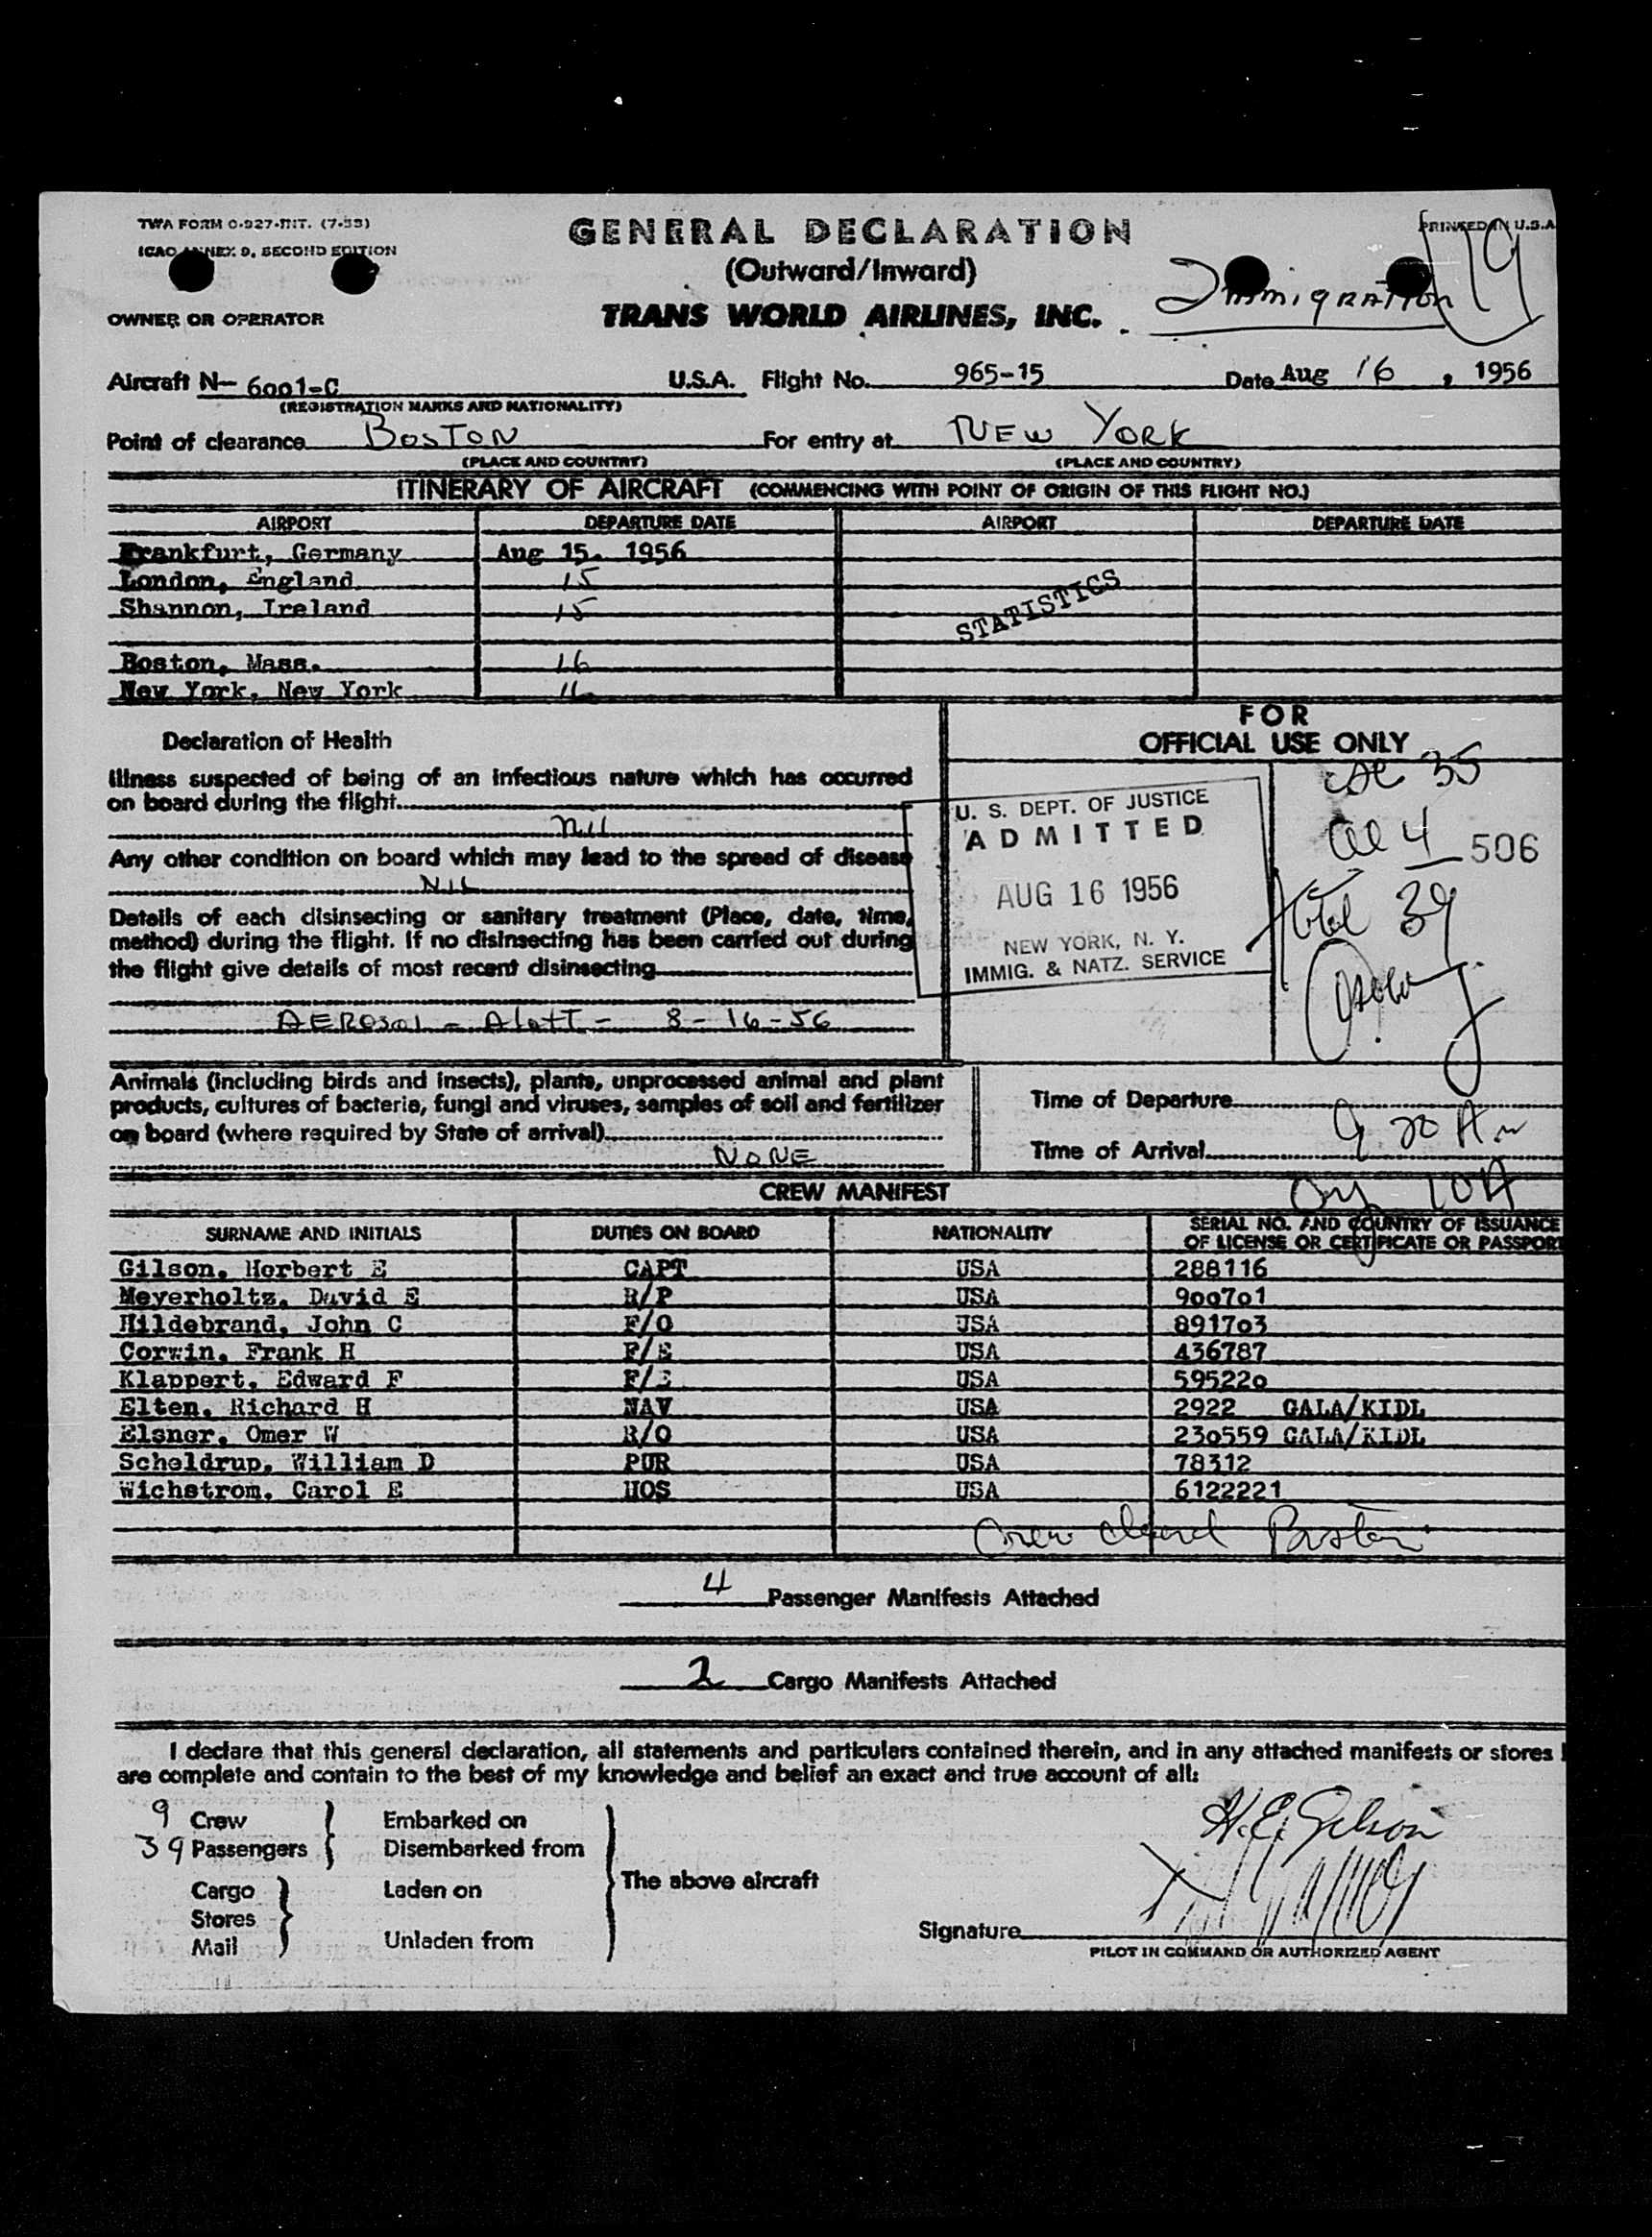 TWA FORM O-927-INT. (7-53)
ICAO ANNEX 9, SECOND EDITION
GENERAL DECLARATION
(Outward/Inward)
PRINTED IN U.S.A
19
Immigration
OWNER OR OPERATOR
TRANS WORLD AIRLINES, INC.
Aircraft N- 6001-C U.S.A. Flight No. 965-15 Date Aug 16, 1956
(REGISTRATION MARKS AND NATIONALITY)
Point of clearance BOSTON For entry at NEW YORK
(PLACE AND COUNTRY) (PLACE AND COUNTRY)
ITINERARY OF AIRCRAFT (COMMENCING WITH POINT OF ORIGIN OF THIS FLIGHT NO.)
AIRPORT DEPARTURE DATE AIRPORT DEPARTURE DATE
Frankfurt, Germany Aug 15, 1956
London, England 15
Shannon, Ireland 15
STATISTICS
Boston, Mass. 16
New York, New York 16
Declaration of Health
Illness suspected of being of an infectious nature which has occurred
on board during the flight
nil
Any other condition on board which may lead to the spread of disease
NIL
Details of each disinsecting or sanitary treatment (Place, date, time,
method) during the flight. If no disinsecting has been carried out during
the flight give details of most recent disinsecting
AEROSOL - - 8-16-56
FOR
OFFICIAL USE ONLY
U. S. DEPT. OF JUSTICE
ADMITTED
AUG 16 1956
NEW YORK, N. Y.
IMMIG. & NATZ. SERVICE
35
4 506
total 39
Animals (including birds and insects), plants, unprocessed animal and plant
products, cultures of bacteria, fungi and viruses, samples of soil and fertilizer
on board (where required by State of arrival)
NONE
Time of Departure
Time of Arrival 9 20 Am
10A
CREW MANIFEST
SURNAME AND INITIALS DUTIES ON BOARD NATIONALITY SERIAL NO. AND COUNTRY OF ISSUANCE
OF LICENSE OR CERTIFICATE OR PASSPORT
Gilson, Herbert E CAPT USA 288116
Meyerholtz, David E R/P USA 900701
Hildebrand, John C F/O USA 891703
Corwin, Frank H F/E USA 436787
Klappert, Edward F F/E USA 595220
Elten, Richard H NAV USA 2922 GALA/KIDL
Elsner, Omer W R/O USA 230559 GALA/KIDL
Scheldrup, William D PUR USA 78312
Wichstrom, Carol E HOS USA 6122221
Crew cleared Boston
4 Passenger Manifests Attached
2 Cargo Manifests Attached
I declare that this general declaration, all statements and particulars contained therein, and in any attached manifests or stores l
are complete and contain to the best of my knowledge and belief an exact and true account of all:
9 Crew Embarked on
39 Passengers Disembarked from
Cargo Laden on
Stores
Mail Unladen from
The above aircraft
H.E. Gilson
Signature
PILOT IN COMMAND OR AUTHORIZED AGENT